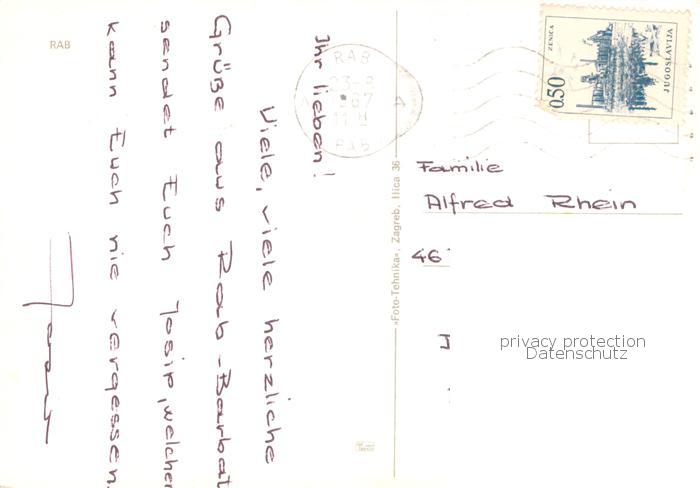 RAB
Ihr lieben!
Viele, viele herzliche
Grüße aus Rab-Barbat
sendet Euch Josip, welcher
kann Euch nie vergessen.
»Foto-Tehnika«, Zagreb, Ilica 36
RAB
RAB
ZENICA
0.50
JUGOSLAVIJA
Familie
Alfred Rhein
46
privacy protection
Datenschutz